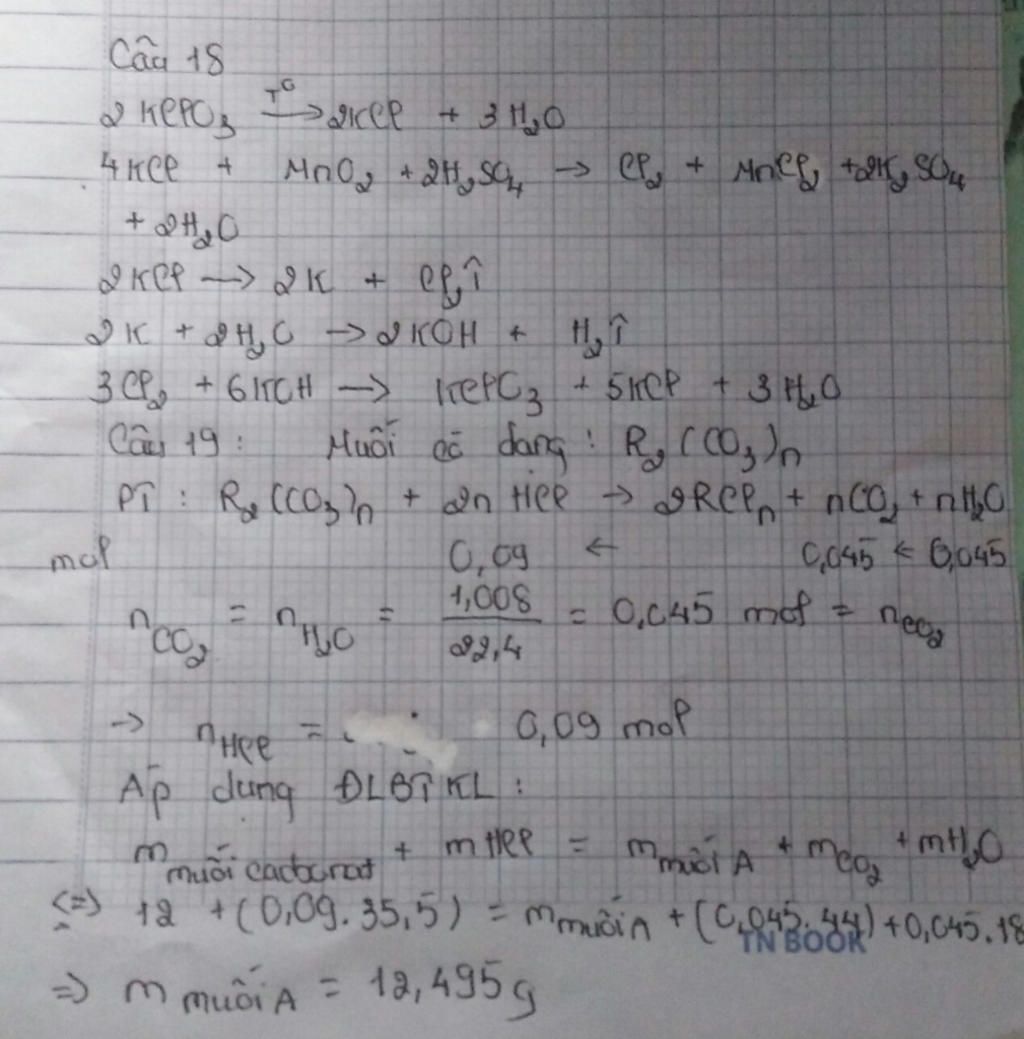 Câu 18
2 KClO3 T° → 2KCl + 3 H2O
4KCl + MnO2 + 2H2SO4 → Cl2 + MnCl2 + 2K2SO4
+ 2H2O
2KCl → 2K + Cl2↑
2K + 2H2O → 2KOH + H2↑
3Cl2 + 6KOH → KClO3 + 5KCl + 3H2O
Câu 19 : Muối có dạng : R2(CO3)n
PT : R2(CO3)n + 2n HCl → 2RCln + nCO2 + nH2O
mol 0,09 ← 0,045 ← 0,045
nCO2 = nH2O = 1,008 / 22,4 = 0,045 mol = nCO2
→ nHCl = 0,09 mol
Áp dụng ĐLBTKL :
m muối cacbonat + mHCl = m muối A + mCO2 + mH2O
<=> 12 + (0,09.35,5) = m muối A + (0,045.44) + 0,045.18
TN BOOK
=> m muối A = 12,495g